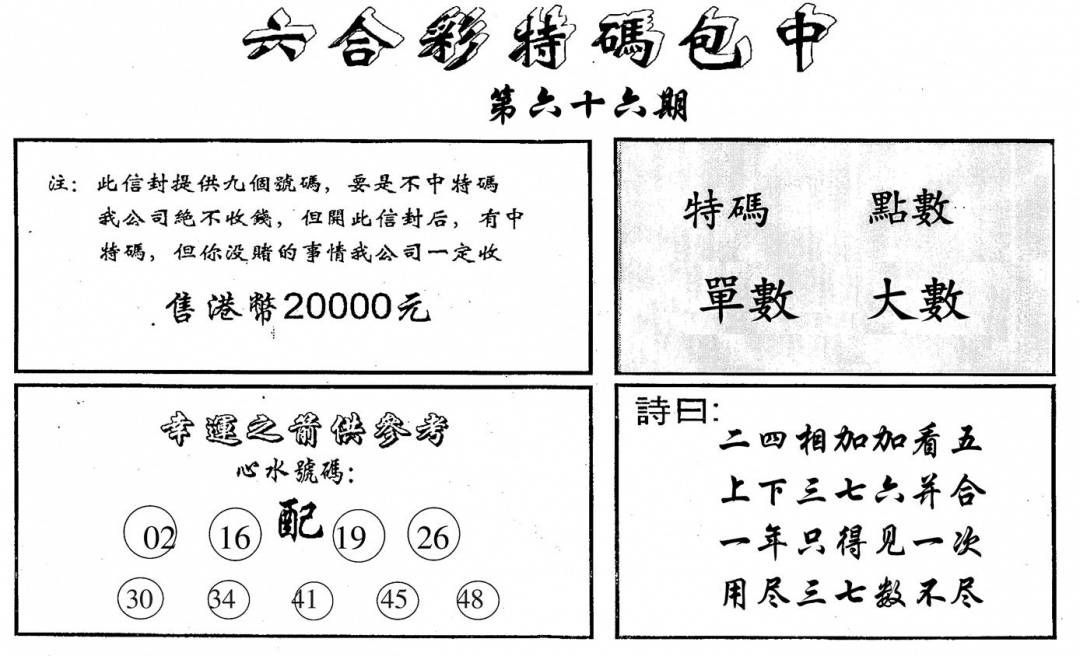 六合彩特碼包中
第六十六期
注：此信封提供九個號碼，要是不中特碼
我公司絶不收錢，但開此信封后，有中
特碼，但你没賭的事情我公司一定收
售港幣20000元
特碼 點數
單數 大數
幸運之箭供參考
心水號碼：
配
02 16 19 26
30 34 41 45 48
詩曰：
二四相加加看五
上下三七六并合
一年只得见一次
用尽三七数不尽